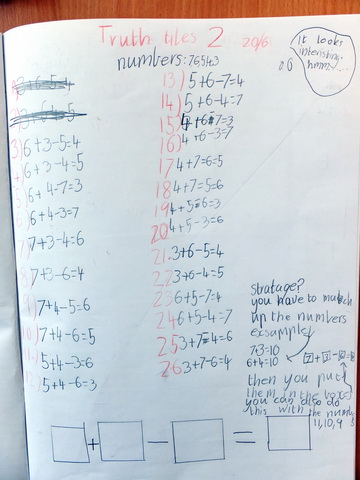 Truth tiles 2 20/6
numbers: 7,6,5,4,3
It looks
intersting
hmm...
3) 6+3-5=4
6+3-4=5
6+4-7=3
6+4-3=7
7+3-4=6
7+3-6=4
7+4-5=6
10) 7+4-6=5
11) 5+4-3=6
12) 5+4-6=3
13) 5+6-7=4
14) 5+6-4=7
15)
16) 4+6-3=7
17 4+7=6=5
18 4+7=5=6
19 4+5=6=3
20 4+5-3=6
21. 3+6-5=4
22 3+6-4=5
23 6+5-7=4
24 6+5-4=7
25 3+7-4=6
26 3+7-6=4
stratage?
you have to match
up the numbers
exsample
7+3=10
6+4=10
then you put
them in the boxes
you can also do
this with the numbers
11,10,9
+ - =